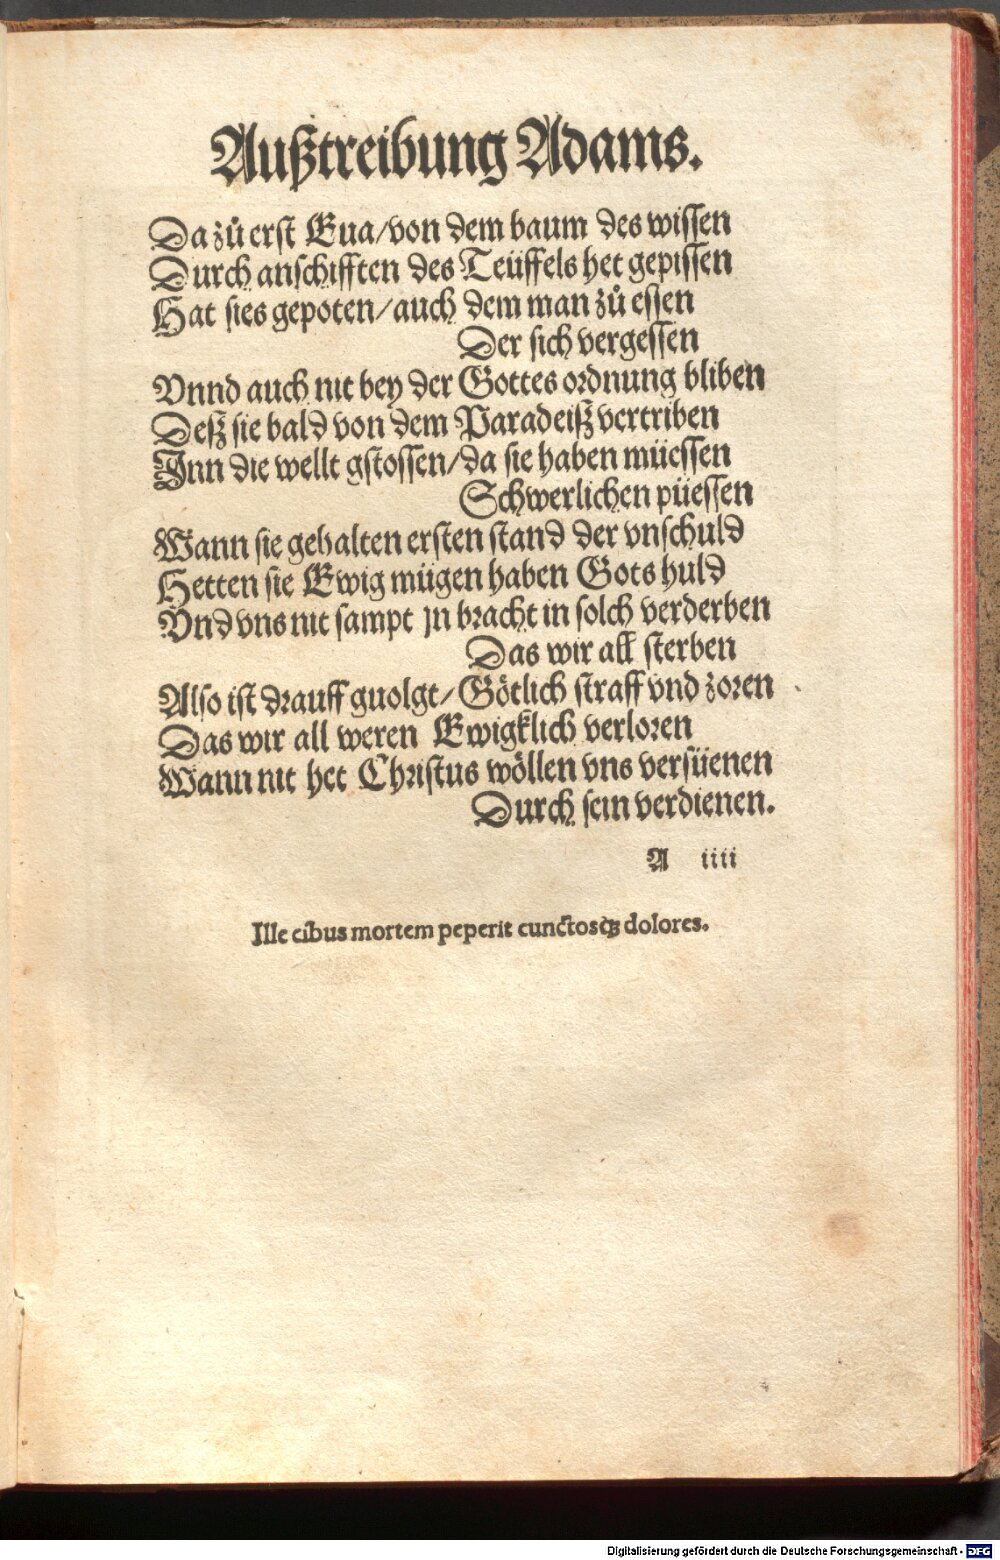 Außtreibung Adams.
Da zů erst Eua/von dem baum des wissen
Durch anschifften des Teüffels het gepissen
Hat sies gepoten/auch dem man zů essen
Der sich vergessen
Vnnd auch nit bey der Gottes ordnung bliben
Deß sie bald von dem Paradeiß vertriben
Inn die wellt gstossen/da sie haben müessen
Schwerlichen püessen
Wann sie gehalten ersten stand der vnschuld
Hetten sie Ewig mügen haben Gots huld
Vnd vns nit sampt jn bracht in solch verderben
Das wir all sterben
Also ist drauff guolgt/Götlich straff vnd zoren
Das wir all weren Ewigklich verloren
Wann nit het Christus wöllen vns versüenen
Durch sein verdienen.
A iiii
Ille cibus mortem peperit cunctosqꝫ dolores.
Digitalisierung gefördert durch die Deutsche Forschungsgemeinschaft - DFG